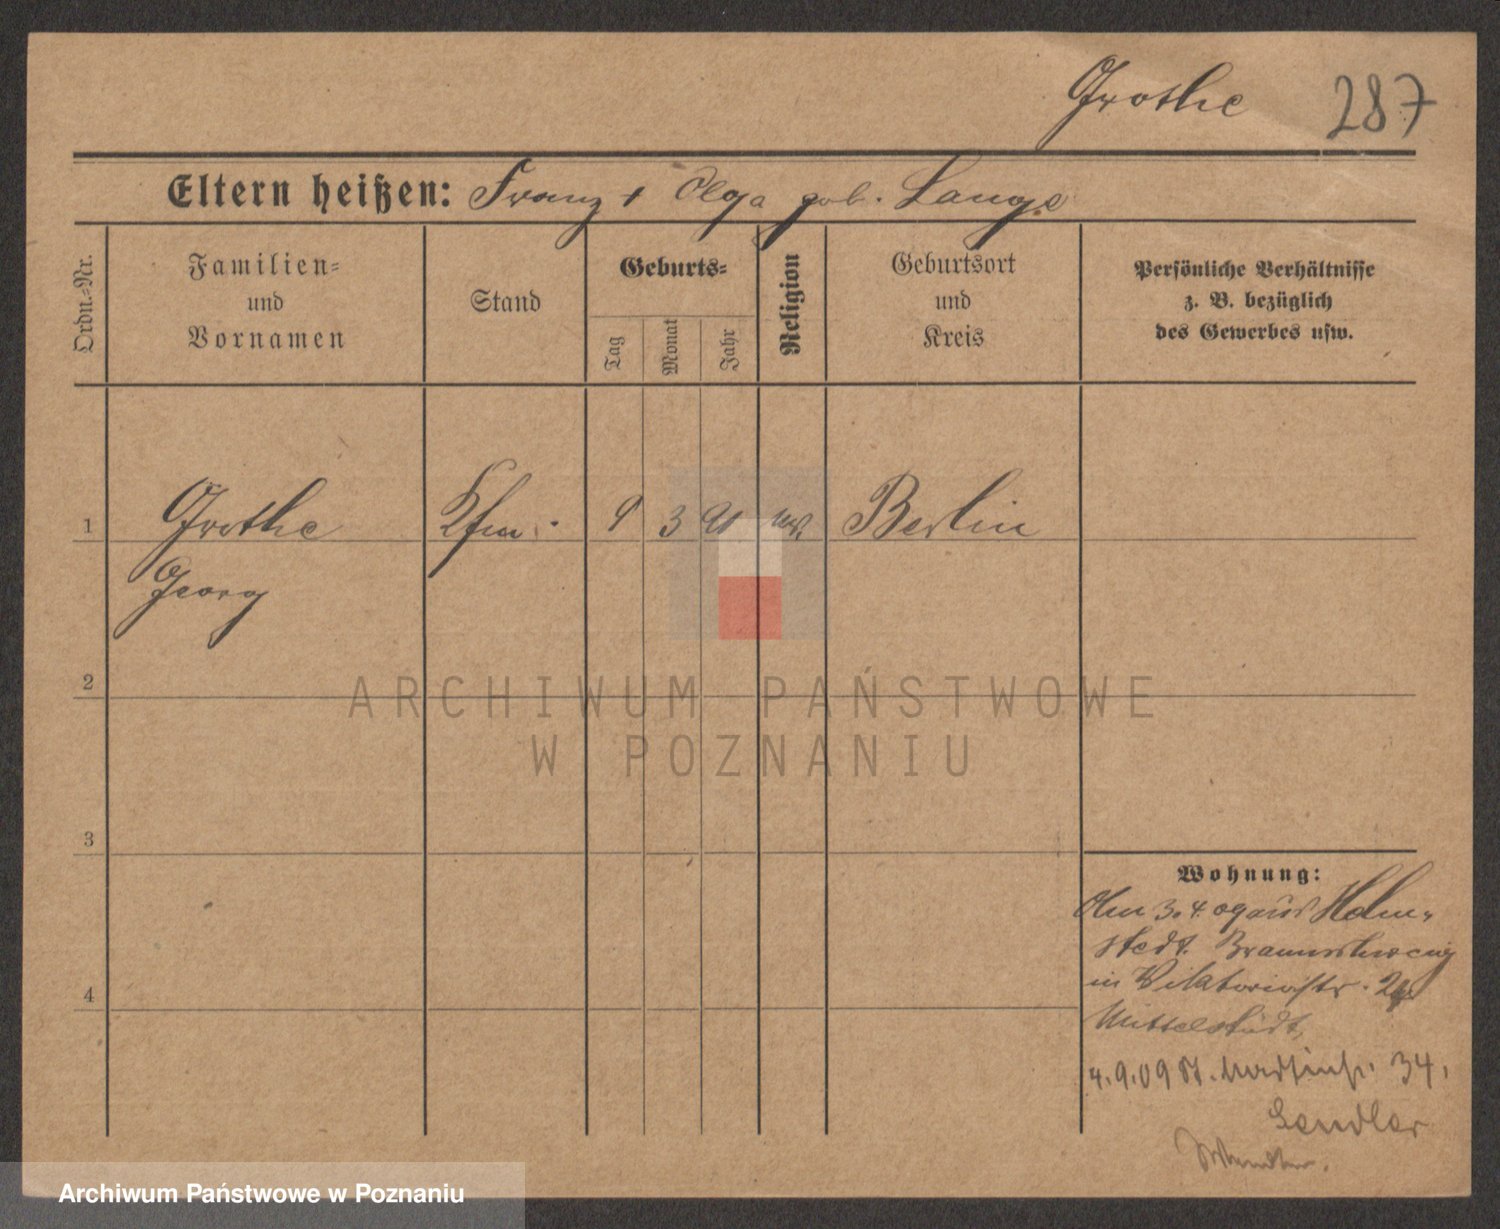 Grothe 287
Eltern heißen: Franz + Olga geb. Lange
Ordn.-Nr.
Familien-
und
Vornamen
Stand
Geburts-
Tag
Monat
Jahr
Religion
Geburtsort
und
Kreis
Persönliche Verhältnisse
z. B. bezüglich
des Gewerbes usw.
1 Grothe Kfm. 9 3 91 Berlin
Georg
2
3
4
Wohnung:
3.4.09 aus Helm-
stedt. Braunschweig
in Viktoriastr.
Mittelstädt,
4.9.09 St. Martinstr. 34.
Sendler
ARCHIWUM PAŃSTWOWE
W POZNANIU
Archiwum Państwowe w Poznaniu